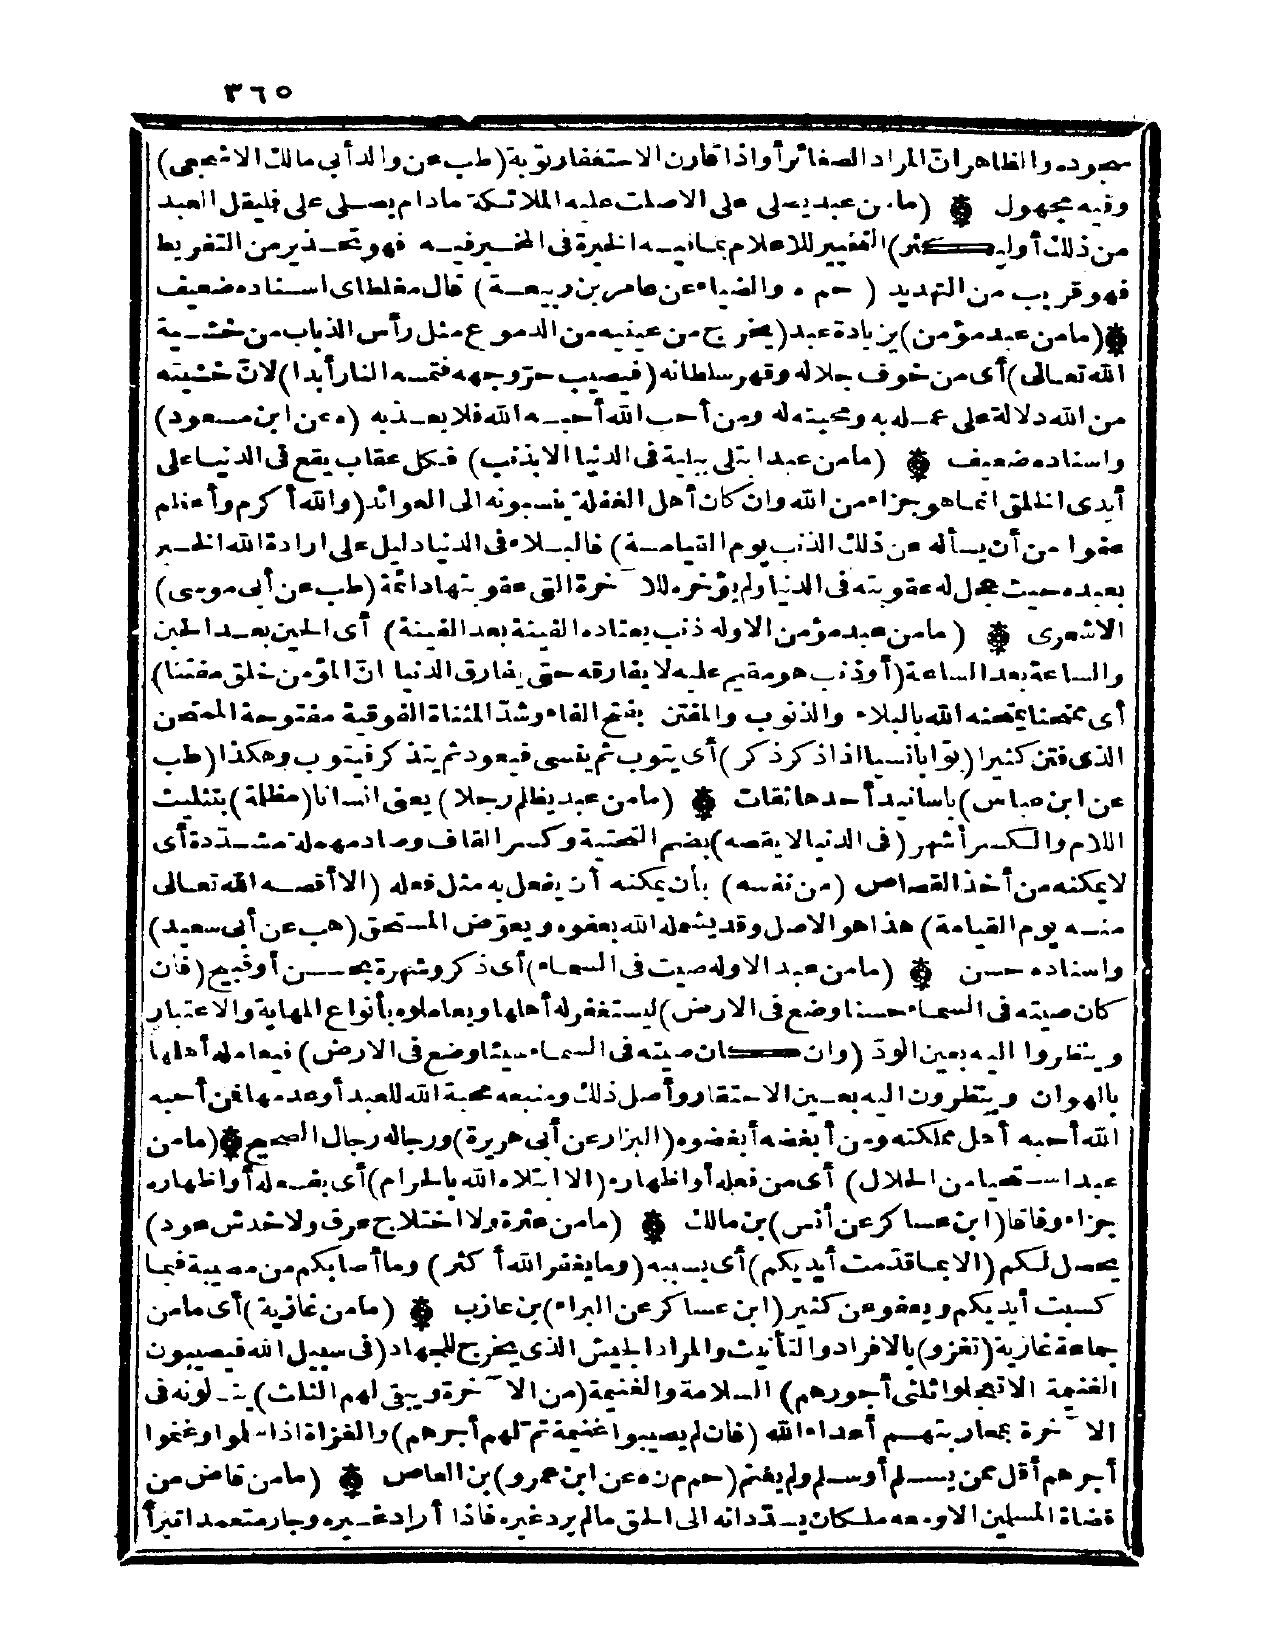 ٣٦٥
سجوده والظاهر ان المراد الصغائر أواذا قارن الاستغفار توبة (طب عن والد أبى مالك الاشجعى)
وفيه مجهول ۞ (مامن عبد يصلى على الاصلت عليه الملائكة مادام يصلى على فليقل العبد
من ذلك أوليكثر) التخيير للاعلام بمافيه الخيرة فى المخير فيه فهو تحذير من التفريط
فهو قريب من التهديد (حم ه والضياء عن عامر بن ربيعة) قال مغلطاى اسناده ضعيف
۞ (مامن عبد مؤمن) بزيادة عبد (يخرج من عينيه من الدموع مثل رأس الذباب من خشية
الله تعالى) أى من خوف جلاله وقهر سلطانه (فيصيب حرّ وجهه فتمسه النار أبدا) لانّ خشيته
من الله دلالة على علمه به ومحبته له ومن أحب الله أحبه الله فلا يعذبه (ه عن ابن مسعود)
واسناده ضعيف ۞ (مامن عبد ابتلى ببلية فى الدنيا الابذنب) فكل عقاب يقع فى الدنيا على
أيدى الخلق انما هو جزاء من الله وان كان أهل الغفلة ينسبونه الى العوائد (والله أكرم وأعظم
عفوا من أن يسأله عن ذلك الذنب يوم القيامة) فالبلاء فى الدنيا دليل على ارادة الله الخير
بعبده حيث عجل له عقوبته فى الدنيا ولم يؤخره للآخرة التى عقوبتها دائمة (طب عن أبى موسى)
الاشعرى ۞ (مامن عبد مؤمن الاوله ذنب يعتاده الفينة بعد الفينة) أى الحين بعد الحين
والساعة بعد الساعة (أوذنب هو مقيم عليه لا يفارقه حتى يفارق الدنيا انّ المؤمن خلق مفتنا)
أى ممتحنا يمتحنه الله بالبلاء والذنوب والمفتن بفتح الفاء وشدّ المثناة الفوقية مفتوحة الممتحن
الذى فتن كثيرا (توّابا نسيا اذا ذكر ذكر) أى يتوب ثم ينسى فيعود ثم يتذكر فيتوب وهكذا (طب
عن ابن عباس) باسانيد أحدها ثقات ۞ (مامن عبد يظلم رجلا) يعنى انسانا (مظلمة) بتثليث
اللام والكسر أشهر (فى الدنيا لا يقصه) بضم التحتية وكسر القاف وصاد مهملة مشددة أى
لا يمكنه من أخذ القصاص (من نفسه) بأن يمكنه أن يفعل به مثل فعله (الاأقصه الله تعالى
منه يوم القيامة) هذا هو الاصل وقد يشمله الله بعفوه ويعوّض المستحق (هب عن أبى سعيد)
واسناده حسن ۞ (مامن عبد الاوله صيت فى السماء) أى ذكر وشهرة بحسن أوقبيح (فان
كان صيته فى السماء حسنا وضع فى الارض) ليستغفر له أهلها ويعاملوه بأنواع المهابة والاعتبار
وينظروا اليه بعين الودّ (وان كان صيته فى السماء سيئا وضع فى الارض) فيعامله أهلها
بالهوان وينظرون اليه بعين الاحتقار وأصل ذلك ومنبعه محبة الله للعبد أوعدمها فمن أحبه
الله أحبه أهل مملكته ومن أبغضه أبغضوه (البزار عن أبى هريرة) ورجاله رجال الصحيح ۞ (مامن
عبد استحيا من الحلال) أى من فعله أواظهاره (الاابتلاه الله بالحرام) أى بفعله أواظهاره
جزاء وفاقا (ابن عساكر عن أنس) بن مالك ۞ (مامن عثرة ولا اختلاج عرق ولا خدش عود)
يحصل لكم (الابما قدّمت أيديكم) أى بسببه (وما يغفر الله أكثر) وماأصابكم من مصيبة فبما
كسبت أيديكم ويعفو عن كثير (ابن عساكر عن البراء) بن عازب ۞ (مامن غازية) أى مامن
جماعة غازية (تغزو) بالافراد والتأنيث والمراد الجيش الذى يخرج للجهاد (فى سبيل الله فيصيبون
الغنيمة الاتعجلوا ثلثى أجورهم) السلامة والغنيمة (من الآخرة ويبقى لهم الثلث) ينالونه فى
الآخرة بمحاربتهم أعداء الله (فان لم يصيبوا غنيمة تم لهم أجرهم) والغزاة اذا سلموا وغنموا
أجرهم أقل ممن يسلم أوسلم ولم يغنم (حم م ن ه عن ابن عمرو) بن العاص ۞ (مامن قاض من
قضاة المسلمين الاومعه ملكان يسددانه الى الحق مالم يرد غيره فاذا أراد غيره وجار متعمدا تبرأ